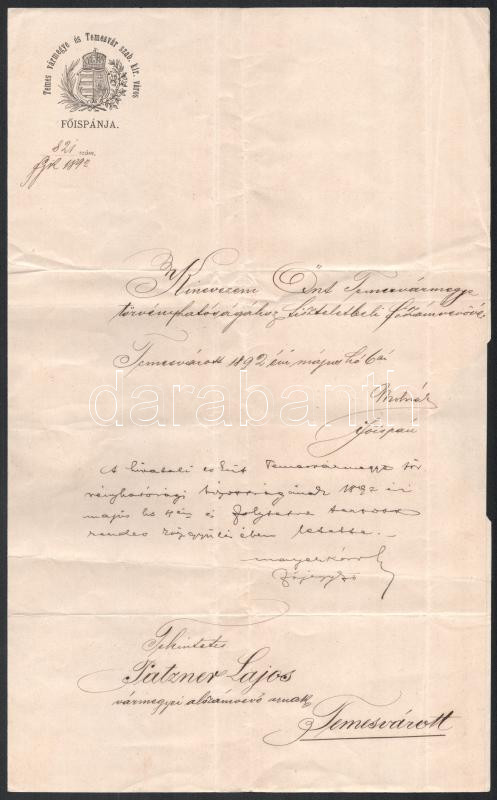 Temes vármegye és Temesvár szab. kir. város
FŐISPÁNJA.
821 szám.
1892
Kinevezem Önt Temesvármegye
törvényhatóságához tiszteletbeli főszámvevővé.
Temesvárott 1892 évi május hó 6án
Molnár
főispán
A hivatali esküt Temesvármegye tör
vényhatósági bizottságának 1892 évi
május hó és folytatva tartott
rendes közgyűlésében letette.
főjegyző
Tekintetes
Patzner Lajos
vármegyei alszámvevő urnak
Temesvárott
darabanth